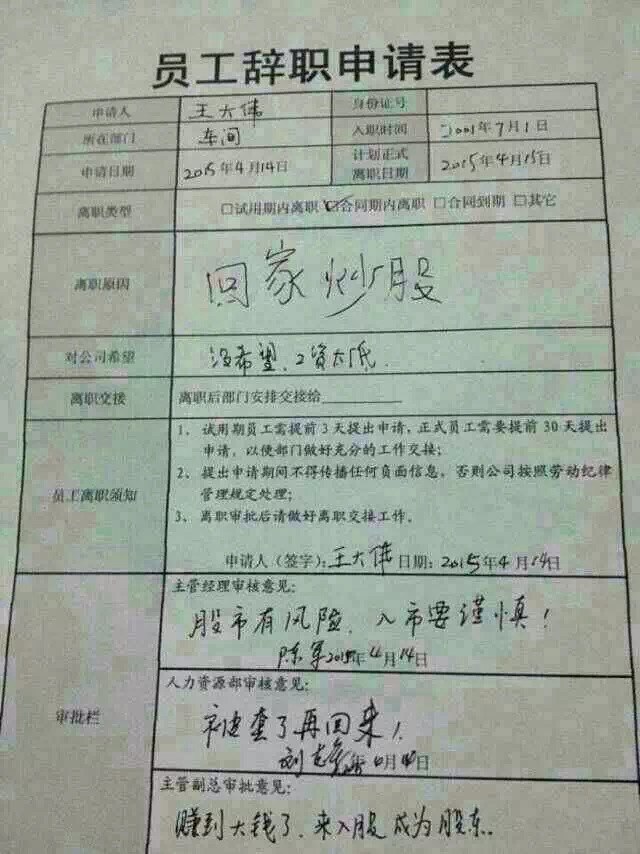 员工辞职申请表
申请人 王大伟 身份证号
所在部门 车间 入职时间 2001年7月1日
申请日期 2015年4月14日 计划正式离职日期 2015年4月15日
离职类型 □试用期内离职 ☑合同期内离职 □合同到期 □其它
离职原因 回家炒股
对公司希望 没希望,工资太低.
离职交接 离职后部门安排交接给
员工离职须知
1、试用期员工需提前3天提出申请,正式员工需要提前30天提出
申请,以便部门做好充分的工作交接;
2、提出申请期间不得传播任何负面信息,否则公司按照劳动纪律
管理规定处理;
3、离职审批后请做好离职交接工作。
申请人(签字):王大伟 日期:2015年4月14日
审批栏
主管经理审核意见:
股市有风险,入市要谨慎!
陈军 2015年4月14日
人力资源部审核意见:
被套了再回来!
年 月 日
主管副总审批意见:
赚到大钱了,来入股成为股东.